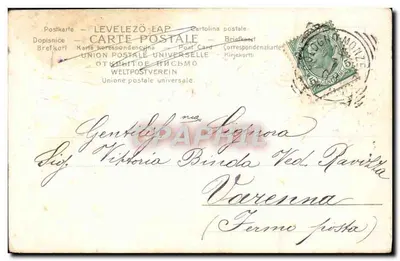 Postkarte - LEVELEZŐ-LAP - Cartolina postale
Dopisnice - CARTE POSTALE - Briefkaart
Brefkort - Karta korespondencyjna - Post Card - Correspondenzkarte
UNION POSTALE UNIVERSELLE - Kirjekortti
ОТКРЫТОЕ ПИСЬМО
WELTPOSTVEREIN
Unione postale universale
Gentilissima Signora
Sig. Vittoria Binda Ved. Ravizza
Varenna
(Fermo posta)